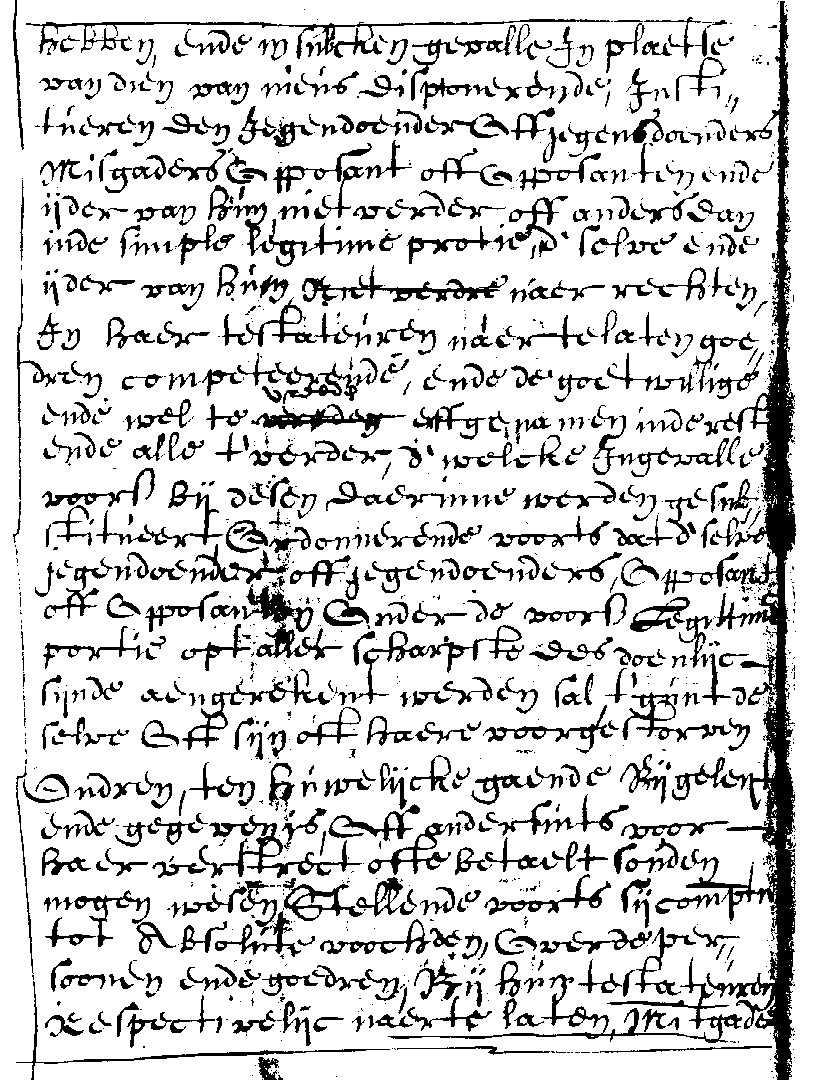 hebben, ende in sulcken gevalle In plaetse
van dien van nieus disponerende, Insti„
tueren den Jegendoender Off jegensdoenders
Misgaders Opposant off Opposanten ende
ijder van hun niet verder off anders dan
inde simple legitime protie, d' selve ende
ijder van hun, Niet verdre naer rechten,
In haer testateuren naer te laten goe„
dren competeerende, ende de goetwillige
ende wel te vrede off genamen inde rest
ende alle t' verder, d' welcke Ingevalle
voors bij desen daerinne werden gesub„
stitueert Ordonnerende voorts dat d' selve
jegendoender off jegendoenders, Opposant
off Opposanten Onder de voors Legittime
portie opt aller scharpste des doenlijc
sijnde aengerekent werden sal, t' gunt de
selve Off sijn oft haere voorgestorven
Oudren, ten huwelijcke gaende Bijgeleyt
ende gegeven is, Off andersints voor
haer verstrect ofte betaelt souden
mogen wesen, Stellende voorts sij comptn
tot Absolute voochden, Over de per„
soonen ende goedren, Bij hun testateuren
Respectivelijc naer te laten, Mitgade